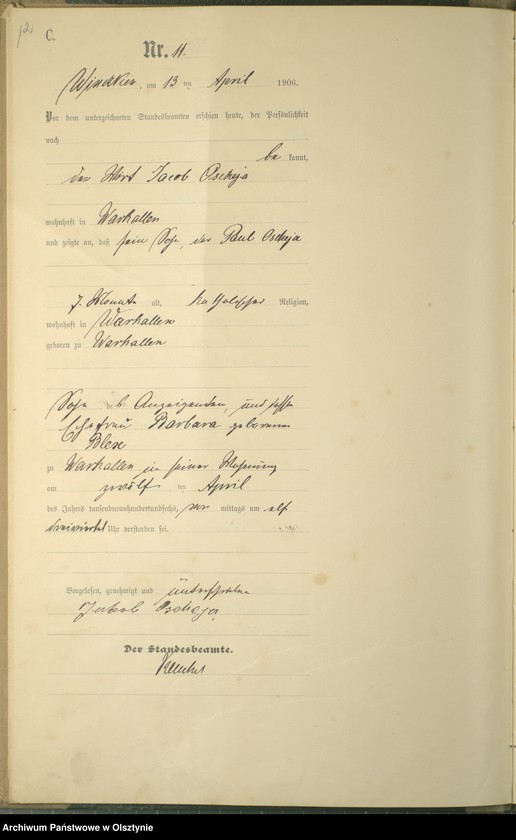 12
C.
Nr. 11.
am 13 ten April 1906.
Vor dem unterzeichneten Standesbeamten erschien heute, der Persönlichkeit
nach
be kannt,
der Wirt Jacob Oscheja
wohnhaft in Warkallen
und zeigte an, daß sein Sohn, der Paul Oscheja
7. Monate alt, katholischer Religion,
wohnhaft in Warkallen
geboren zu Warkallen
Sohn des Anzeigenden, und dessen
Ehefrau Barbara geborenen
zu Warkallen in seiner Wohnung
am zwölf ten April
des Jahres tausendneunhundertundsechs, vor mittags um elf
dreiviertel Uhr verstorben sei.
Vorgelesen, genehmigt und unterschrieben
Jakob Oscheja.
Der Standesbeamte.
Archiwum Państwowe w Olsztynie